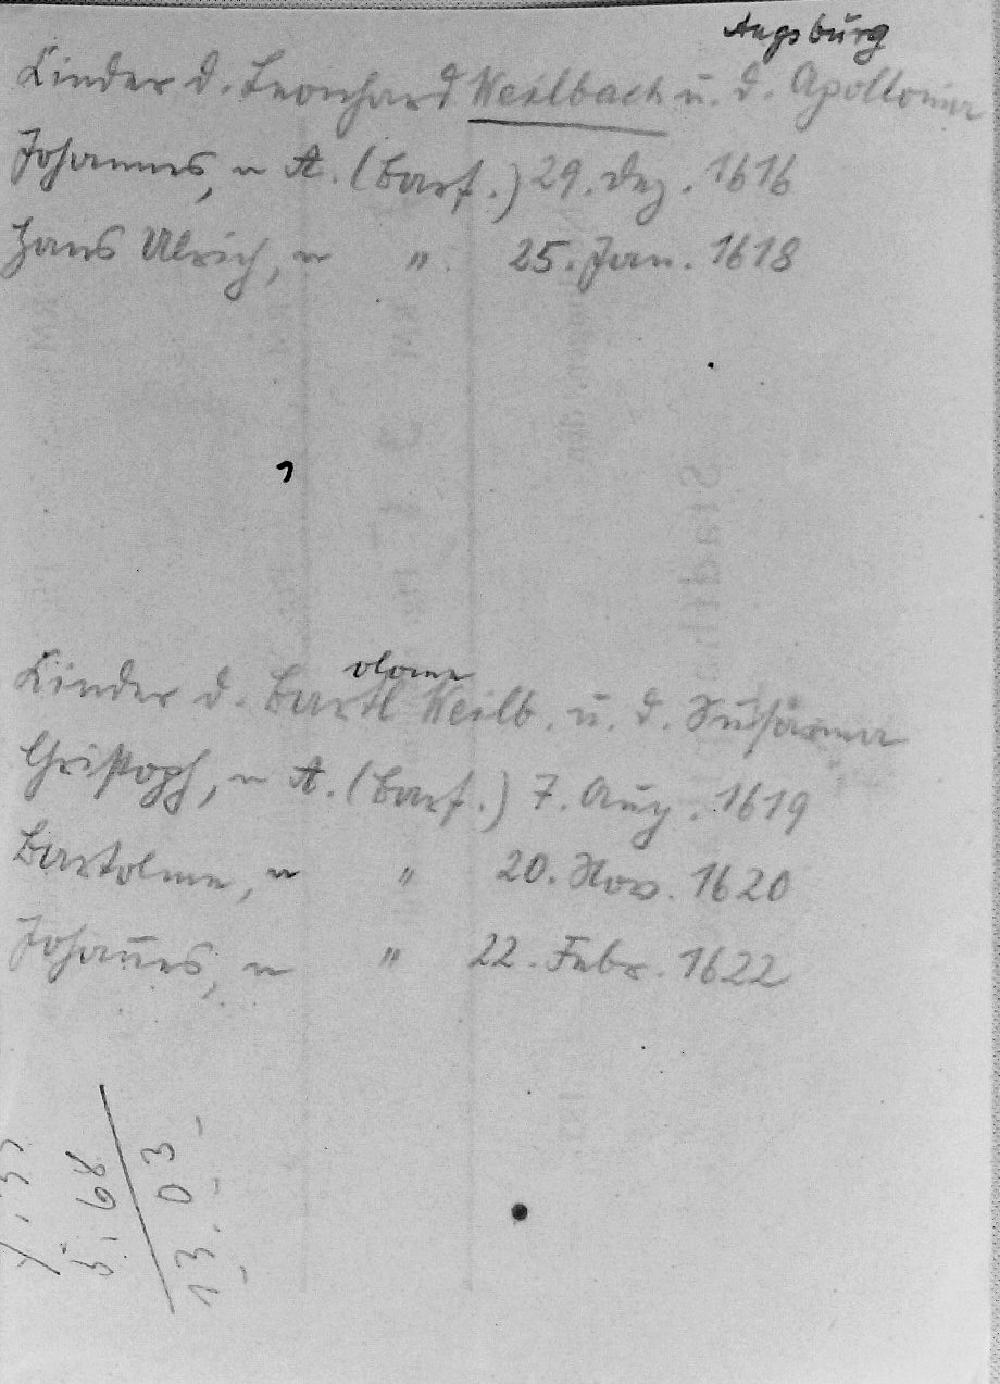 Augsburg
Kinder d. Leonhard Weilbach u. d. Apollonia
Johannes, ~ A. (Barf.) 29. Dez. 1616
Hans Ulrich, ~ " 25. Jan. 1618
olome
Kinder d. Bartl Weilb. u. d. Susanna
Christoph, ~ A. (Barf.) 7. Aug. 1619
Bartolme, ~ " 20. Nov. 1620
Johan̄es, ~ " 22. Febr. 1622
5.68
13.03